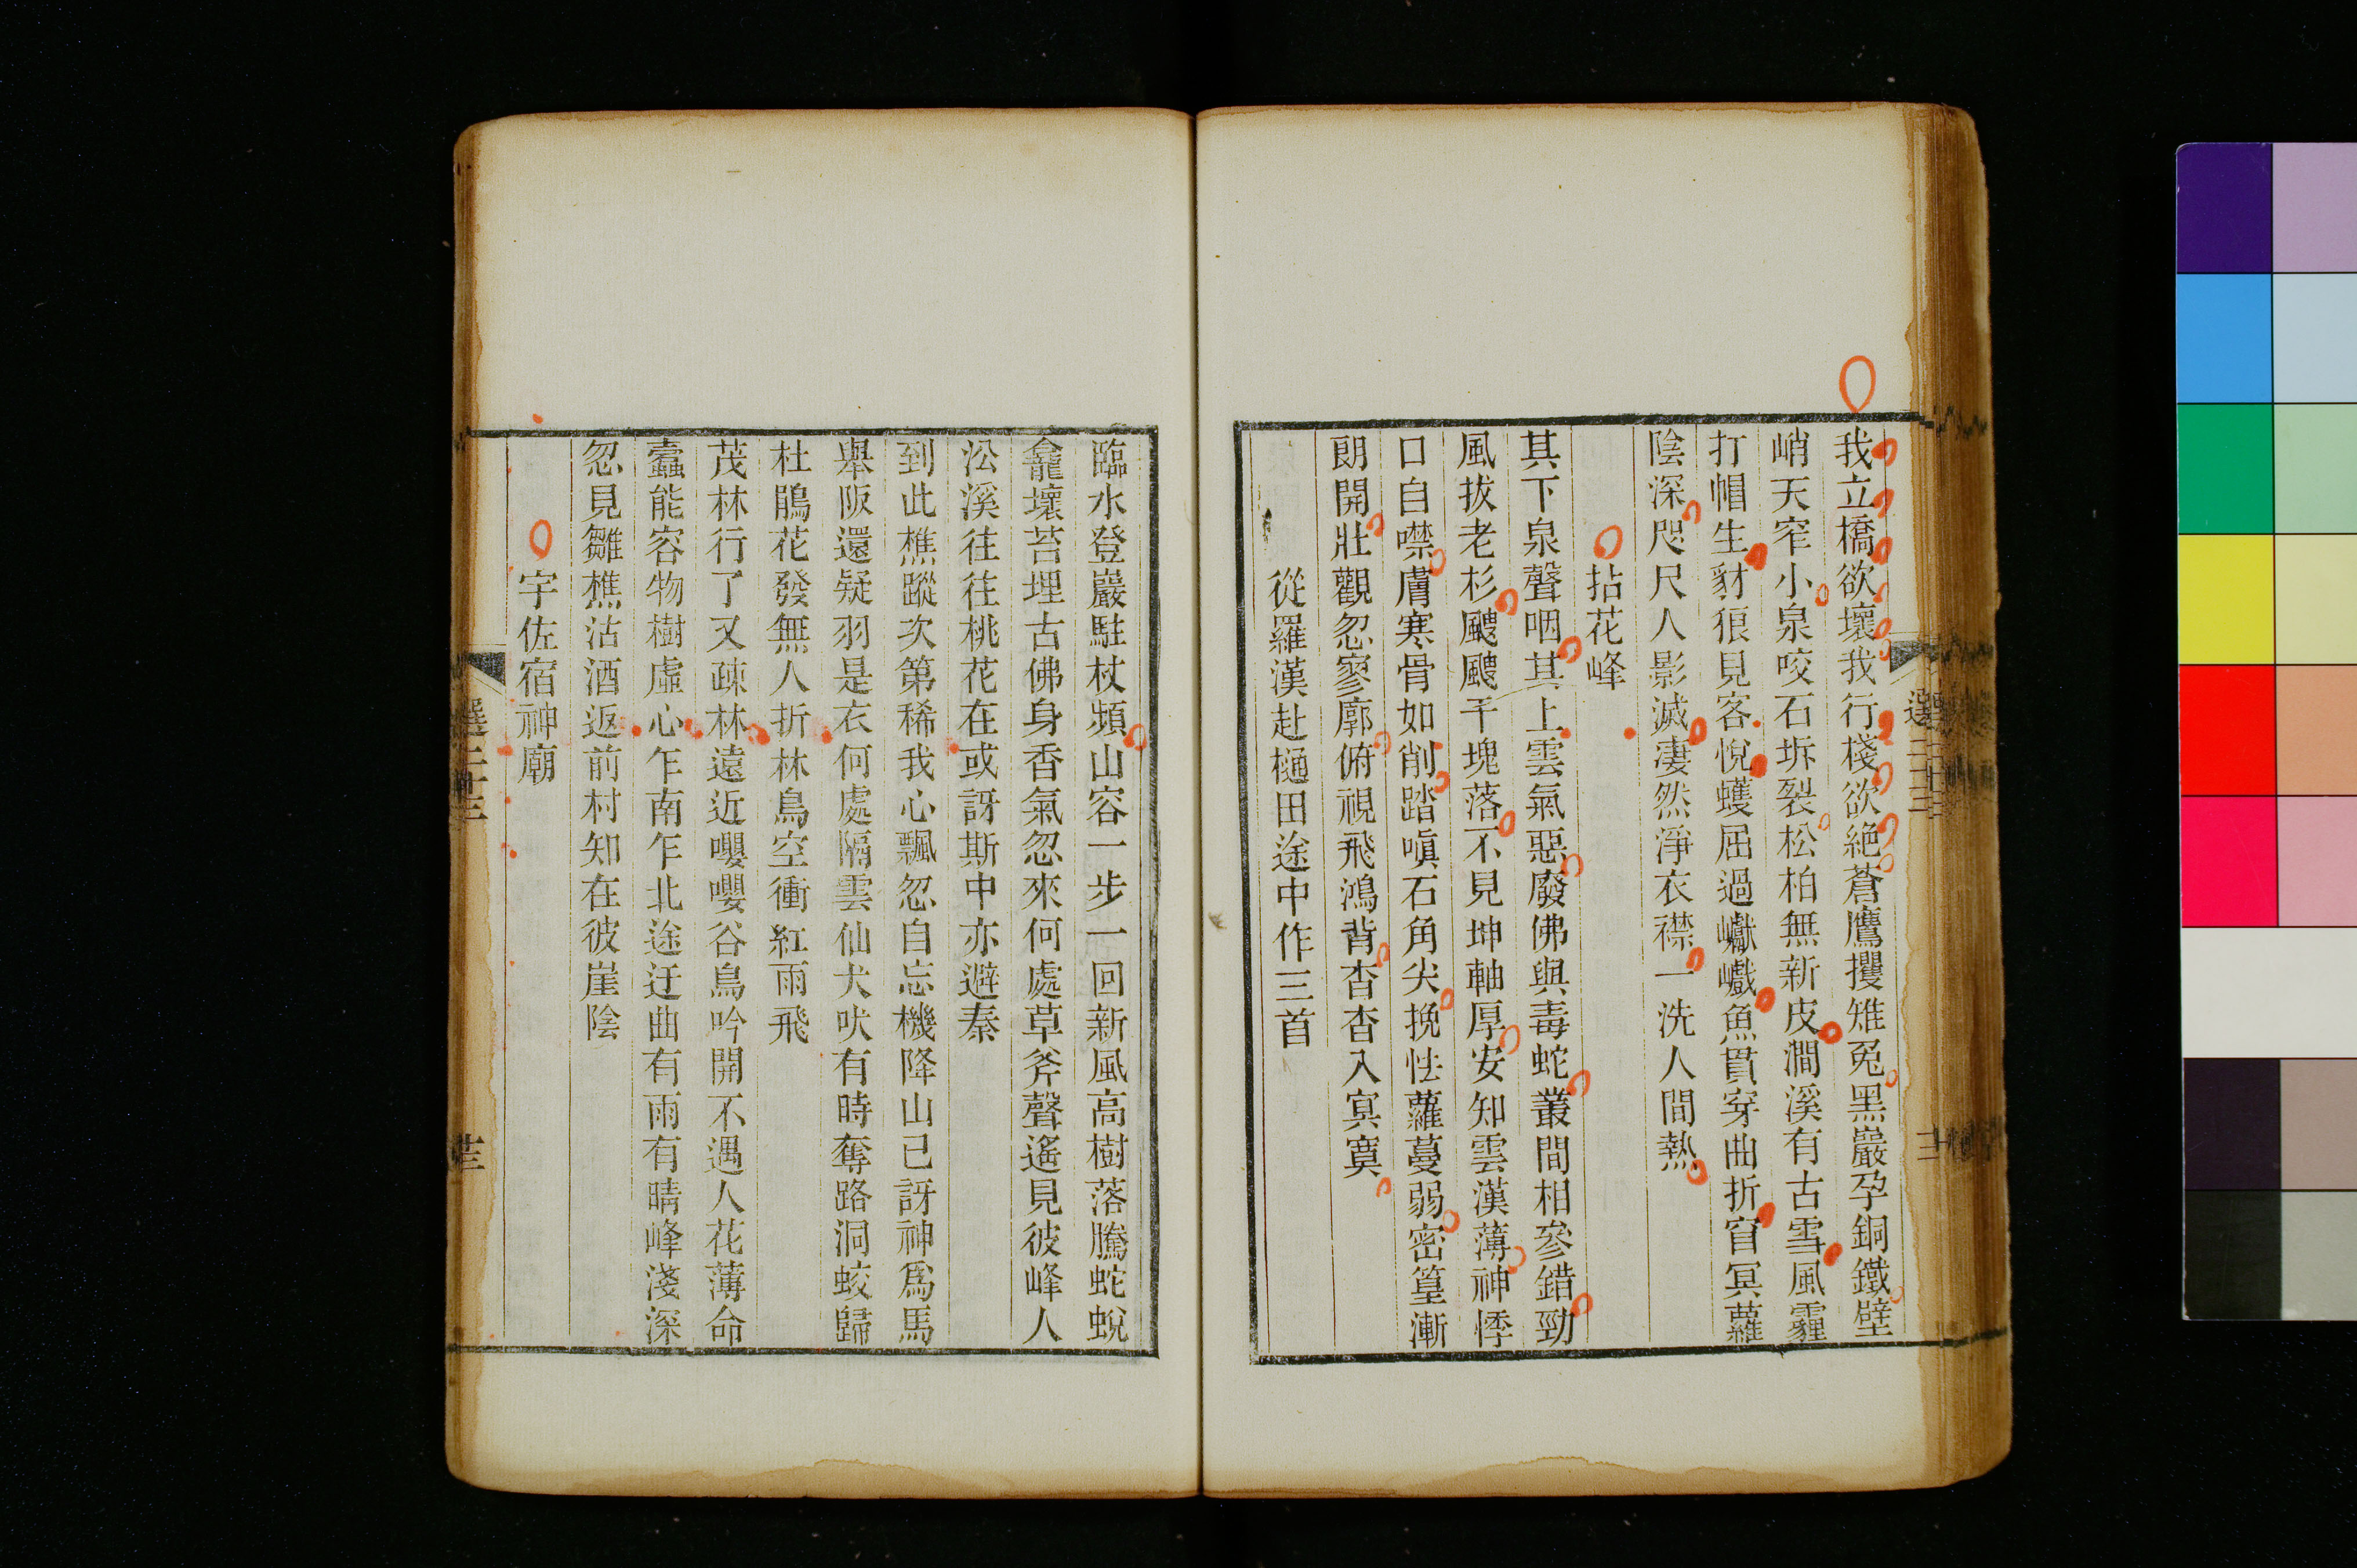 我立橋欲壞我行棧欲絶蒼鷹攫雉兎黑巖孕銅鐵壁
峭天窄小泉咬石坼裂松柏無新皮澗溪有古雪風霾
打帽生豺狼見客悅蠖屈過巘巇魚貫穿曲折窅冥蘿
陰深咫尺人影滅凄然淨衣襟一洗人間熱
拈花峰
其下泉聲咽其上雲氣惡廢佛與毒蛇叢間相參錯勁
風拔老杉颼颼千塊落不見坤軸厚安知雲漢薄神悸
口自噤膚寒骨如削踏嗔石角尖挽怯蘿蔓弱密篁漸
朗開壯觀忽寥廓俯視飛鴻背杳杳入寞寞
從羅漢赴樋田途中作三首
臨水登巖駐杖頻山容一步一回新風高樹落騰蛇蛻
龕壞苔埋古佛身香氣忽來何處草斧聲遙見彼峰人
㳂溪往往桃花在或訝斯中亦避秦
到此樵蹤次第稀我心飄忽自忘機降山已訝神爲馬
舉阪還疑羽是衣何處隔雲仙犬吠有時奪路洞蛟歸
杜鵑花發無人折林鳥空衝紅雨飛
茂林行了又疎林遠近嚶嚶谷鳥吟開不遇人花薄命
蠹能容物樹虛心乍南乍北途迂曲有雨有晴峰淺深
忽見雛樵沽酒返前村知在彼崖陰
宇佐宿神廟